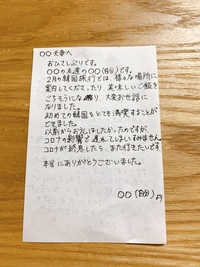 〇〇夫妻へ
おひさしぶりです。
〇〇の友達の〇〇(自分)です。
2月の韓国旅行では、様々な場所に
案内してくださったり、美味しいご飯を
ごちそうになり、大変お世話に
なりました。
初めての韓国をとても満喫することが
できました。
以前からお礼はしたかったのですが、
コロナの影響で遅れてしまいすみません。
コロナが終息したら、また行きたいです。
本当にありがとうございました。
〇〇(自分)より